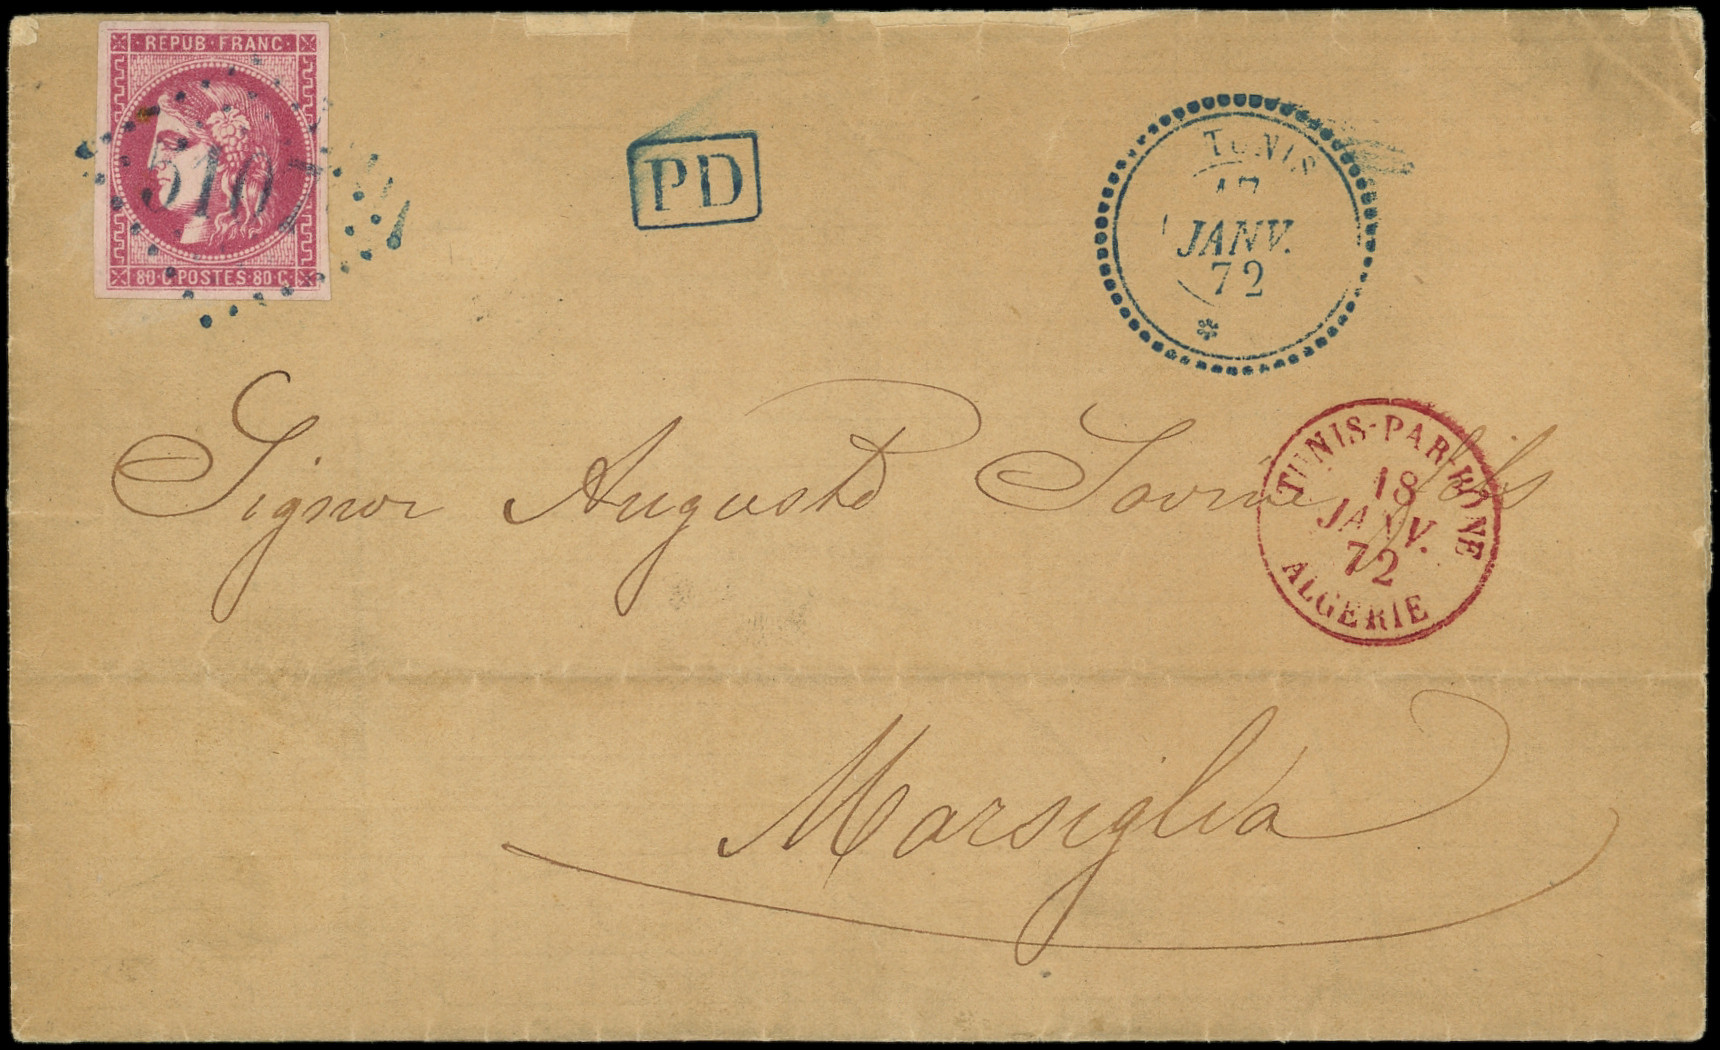 REPUB · FRANC ·
5107
80 · C POSTES · 80 · C
PD
TUNIS
17
JANV.
72
TUNIS-PAR-BONE
18
JANV.
72
ALGERIE
Signor Augusto fils
Marsiglia